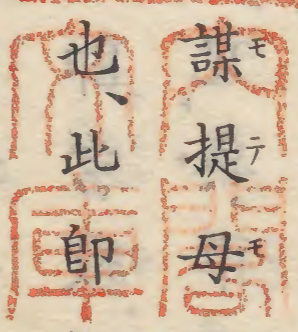 謀モ提テ母モ
也、此即